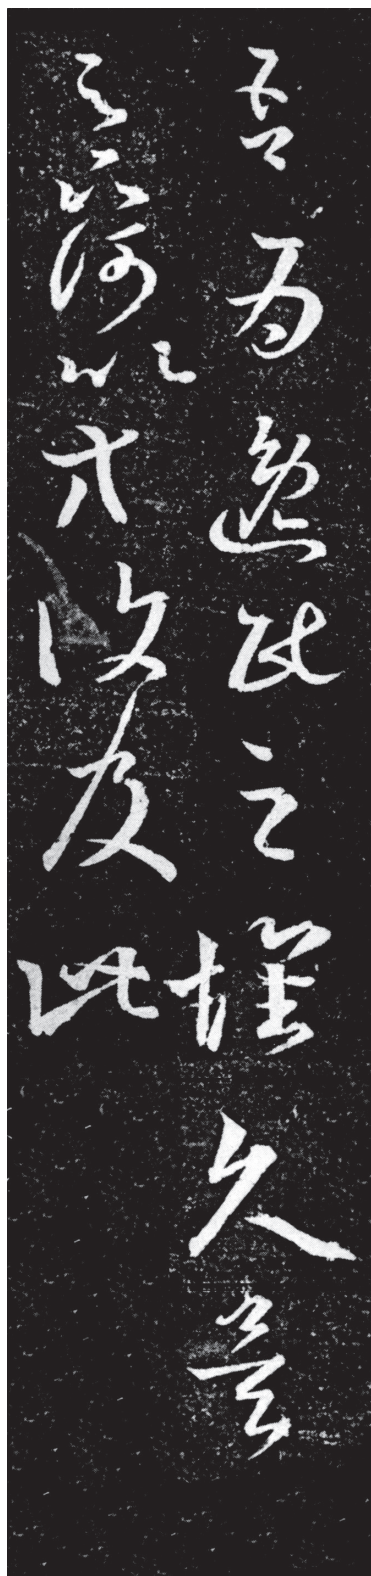 吾為逸民之懷久矣
足下何以方復及此